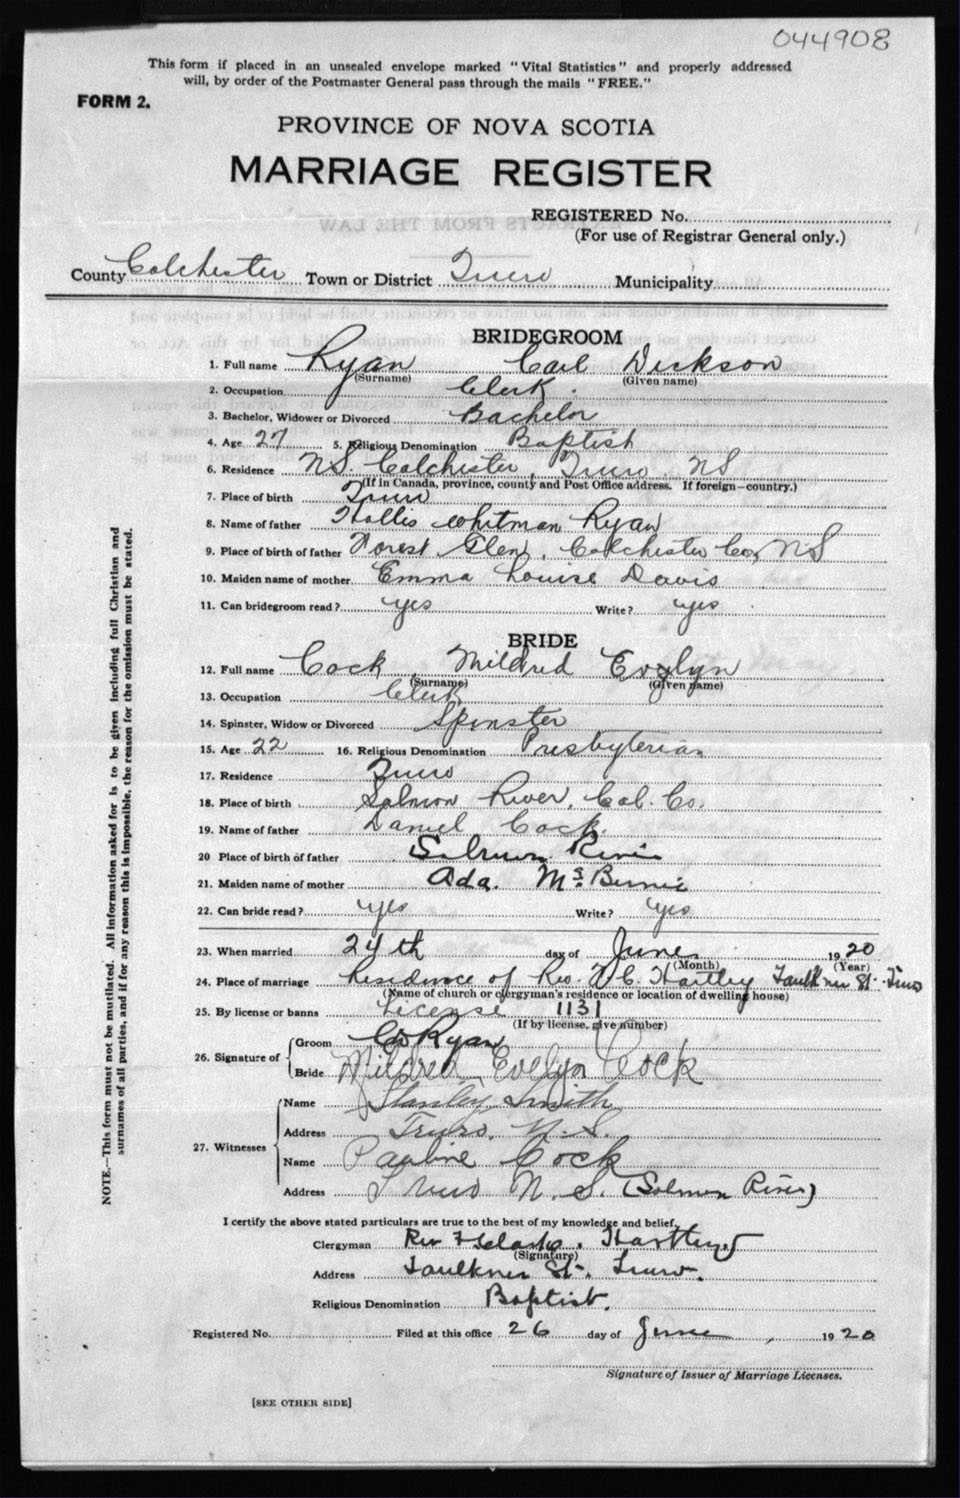 044908
This form if placed in an unsealed envelope marked "Vital Statistics" and properly addressed
will, by order of the Postmaster General pass through the mails "FREE."
FORM 2.
PROVINCE OF NOVA SCOTIA
MARRIAGE REGISTER
REGISTERED No.
(For use of Registrar General only.)
County Colchester Town or District Truro Municipality
BRIDEGROOM
1. Full name Ryan Carl Dickson
(Surname) (Given name)
2. Occupation Clerk.
3. Bachelor, Widower or Divorced Bachelor
4. Age 27 5. Religious Denomination Baptist
6. Residence NS. Colchester, Truro, NS
(If in Canada, province, county and Post Office address. If foreign—country.)
7. Place of birth Truro
8. Name of father Hollis Whitman Ryan
9. Place of birth of father Forest Glen, Colchester Co, NS
10. Maiden name of mother Emma Louise Davis
11. Can bridegroom read? yes Write? yes
BRIDE
12. Full name Cock Mildred Evelyn
(Surname) (Given name)
13. Occupation Clerk
14. Spinster, Widow or Divorced Spinster
15. Age 22 16. Religious Denomination Presbyterian
17. Residence Truro
18. Place of birth Salmon River, Col. Co.
19. Name of father Daniel Cock.
20 Place of birth of father Salmon River
21. Maiden name of mother Ada.
22. Can bride read? yes Write? yes
23. When married 24th day of June 1920
(Month) (Year)
24. Place of marriage Residence of Rev. Hartley Faulkner St. Truro
(Name of church or clergyman's residence or location of dwelling house)
25. By license or banns License 1131
(If by license, give number)
26. Signature of Groom CD Ryan
Bride Mildred Evelyn Cock
27. Witnesses Name Stanley Smith
Address Truro. N.S.
Name Pauline Cock
Address Truro N. S. (Salmon River)
I certify the above stated particulars are true to the best of my knowledge and belief,
Clergyman Rev Hartley
(Signature)
Address Faulkner St. Truro.
Religious Denomination Baptist.
Registered No. Filed at this office 26 day of June, 1920
Signature of Issuer of Marriage Licenses.
[SEE OTHER SIDE]
NOTE.—This form must not be mutilated. All information asked for is to be given including full Christian and
surnames of all parties, and if for any reason this is impossible, the reason for the omission must be stated.